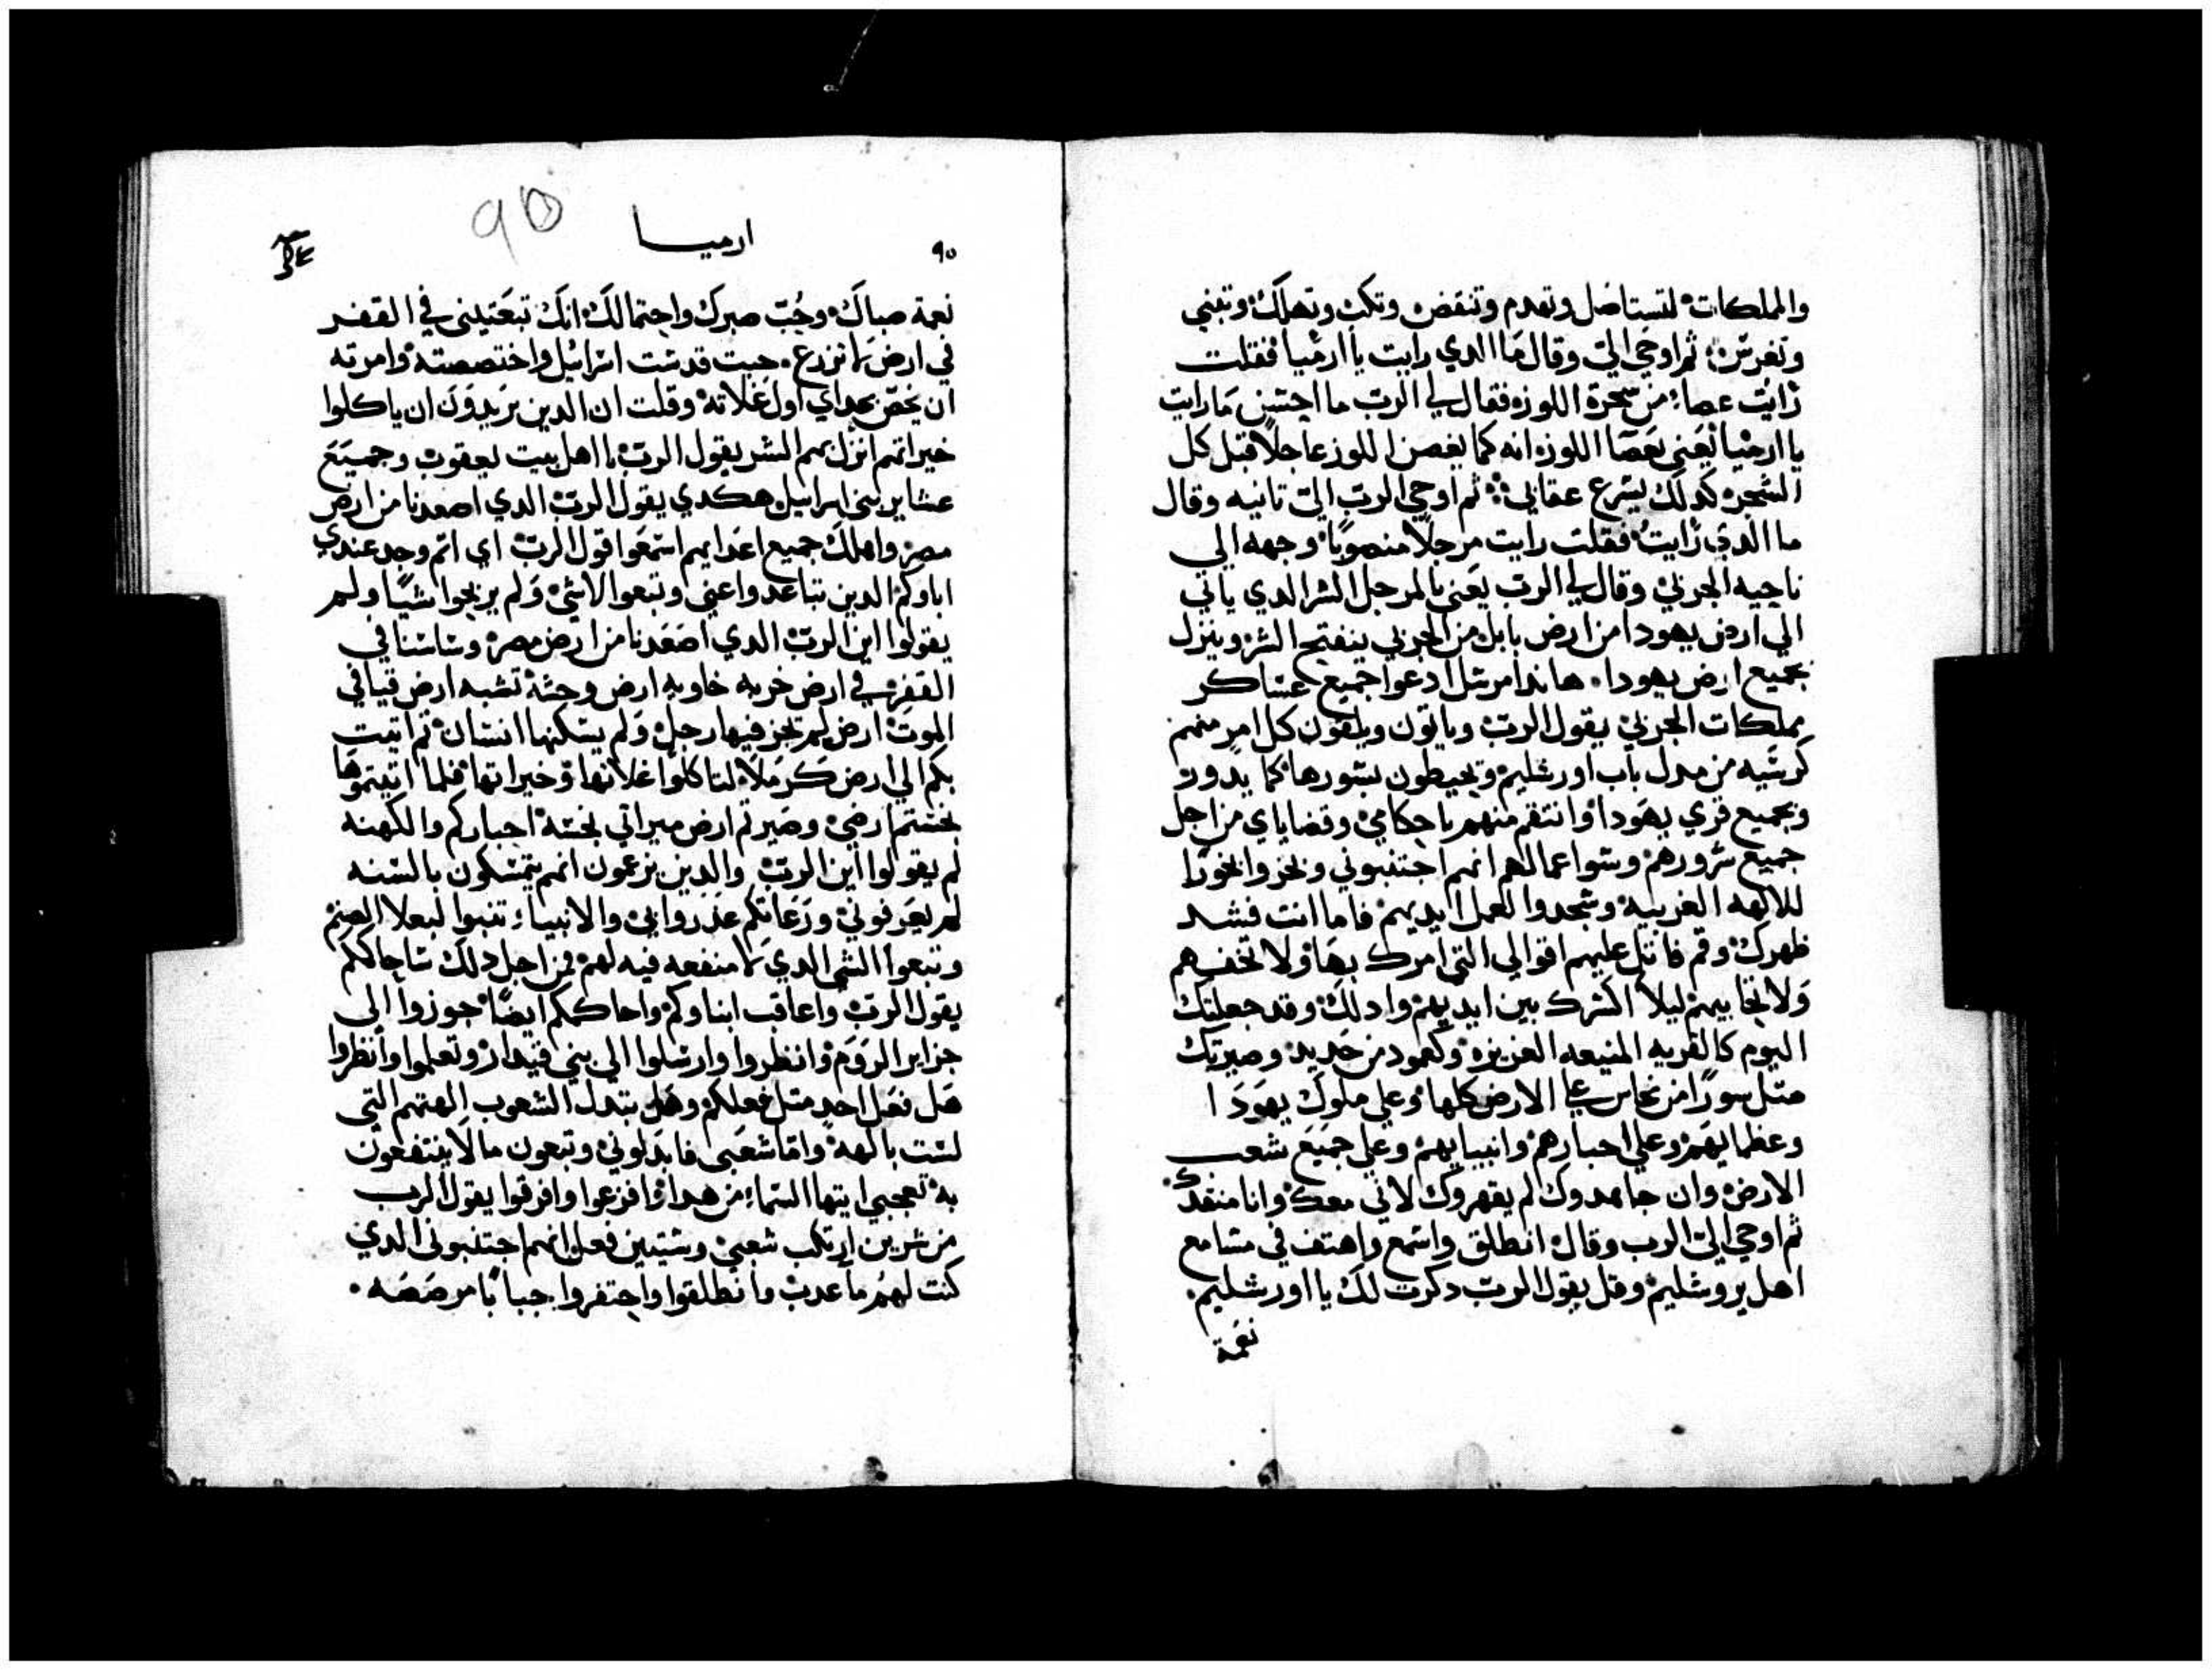 والمملكات لتستاصل وتهدم وتنقض وتكب وتهلك وتبني
وتغرس ثم اوحي الي وقال ما الدي رايت يا ارميا فقلت
رايت عصا من شجرة اللوزه فقال لي الرب ما احسن ما رايت
يا ارميا يعني بعصا اللوزه انه كما يغصن اللوز عاجلا قبل كل
الشجره كدلك يسرع عقابي ثم اوحي الرب الي تانيه وقال
ما الدي رايت فقلت رايت مرجلا منصوبا وجهه الي
ناحيه الجربي وقال لي الرب يعني بالمرجل الشر الدي ياتي
الي ارض يهودا من ارض بابل من الجربي ينفتح الشر وينزل
بجميع ارض يهودا هاندا مرسل ادعوا جميع عساكر
مملكات الجربي يقول الرب وياتون ويلقون كل امر منهم
كرسيه من مدل باب اورشليم ويحيطون بسورها كما يدور
وبجميع قري يهودا وانتقم منهم باحكامي وقضاياي من اجل
جميع شرورهم وسوا عمالهم انهم اجتنبوني وبخروا بخورا
للالهه الغريبه وسجدوا لعمل ايديهم فاما انت فشد
ظهرك وقم فاتل عليهم اقوالي التي امرك بها ولا تخفهم
ولا تحابيهم ليلا اكسرك بين ايديهم وادلك وقد جعلتك
اليوم كالقريه المنيعه العزيزه وكعمود من حديد وصيرتك
متل سورا من نحاس علي الارض كلها وعلي ملوك يهودا
وعظمايهم وعلي احبارهم وانبيايهم وعلي جميع شعب
الارض وان جاهدوك لم يقهروك لاني معك وانا منقدك
ثم اوحي الي الرب وقال انطلق واسمع واهتف في مسامع
اهل يروشليم وقل يقول الرب دكرت لك يا اورشليم
نعمة
٩٠
ارميا
90
نعمة صباك وحب صبرك واحتمالك انك تبعتيني في القفر
في ارض لا تزرع حيت قدست اسراييل واختصصته وامرته
ان يخص اول غلاته وقلت ان الدين يريدون ان ياكلوا
خيراتهم انزل بهم الشر يقول الرب يا اهل بيت يعقوب وجميع
عشاير بني اسراييل هكدي يقول الرب الدي اصعدنا من ارض
مصر واهلك جميع اعدايهم اسمعوا قول الرب اي اتم وجد عندي
اباوكم الدين تباعدوا عني وتبعوا لاشي ولم يربحوا شيا ولم
يقولوا اين الرب الدي اصعدنا من ارض مصر وساسنا في
القفر في ارض خربه خاويه ارض وحشة تشبه ارض فيافي
الموت ارض لم يجز فيها رجل ولم يسكنها انسان تم اتيت
بكم الي ارض كرملا لتاكلوا غلاتها وخيراتها فلما اتيتموها
نجستم ارضي وصيرتم ارض ميراتي نجسة احباركم والكهنه
لم يقولوا اين الرب والدين يزعمون انهم يتمسكون بالسنه
لم يعرفوني ورعاتكم غدروا بي والانبيا تنبوا لبعلا الصنم
وتبعوا الشي الدي لا منفعه فيه لهم فمن اجل دلك ساحاكمكم
يقول الرب واعاقب ابناوكم واحاكمكم ايضا جوزوا الي
جزاير الروم وانظروا وارسلوا الي بني قيدار وتعلموا وانظروا
هل فعل احد متل فعلكم وهل بتدل الشعوب الهتهم التي
لست بالهة واما شعبي فابدلوني وتبعون ما لا ينتفعون
به تعجبي ايتها السما من هدا وافزعوا وافرقوا يقول الرب
من شرين ارتكب شعبي وسيتين فعل انهم اجتنبوني الدي
كنت لهم ما عدب وانطلقوا واحتفروا جبابا مرضضه